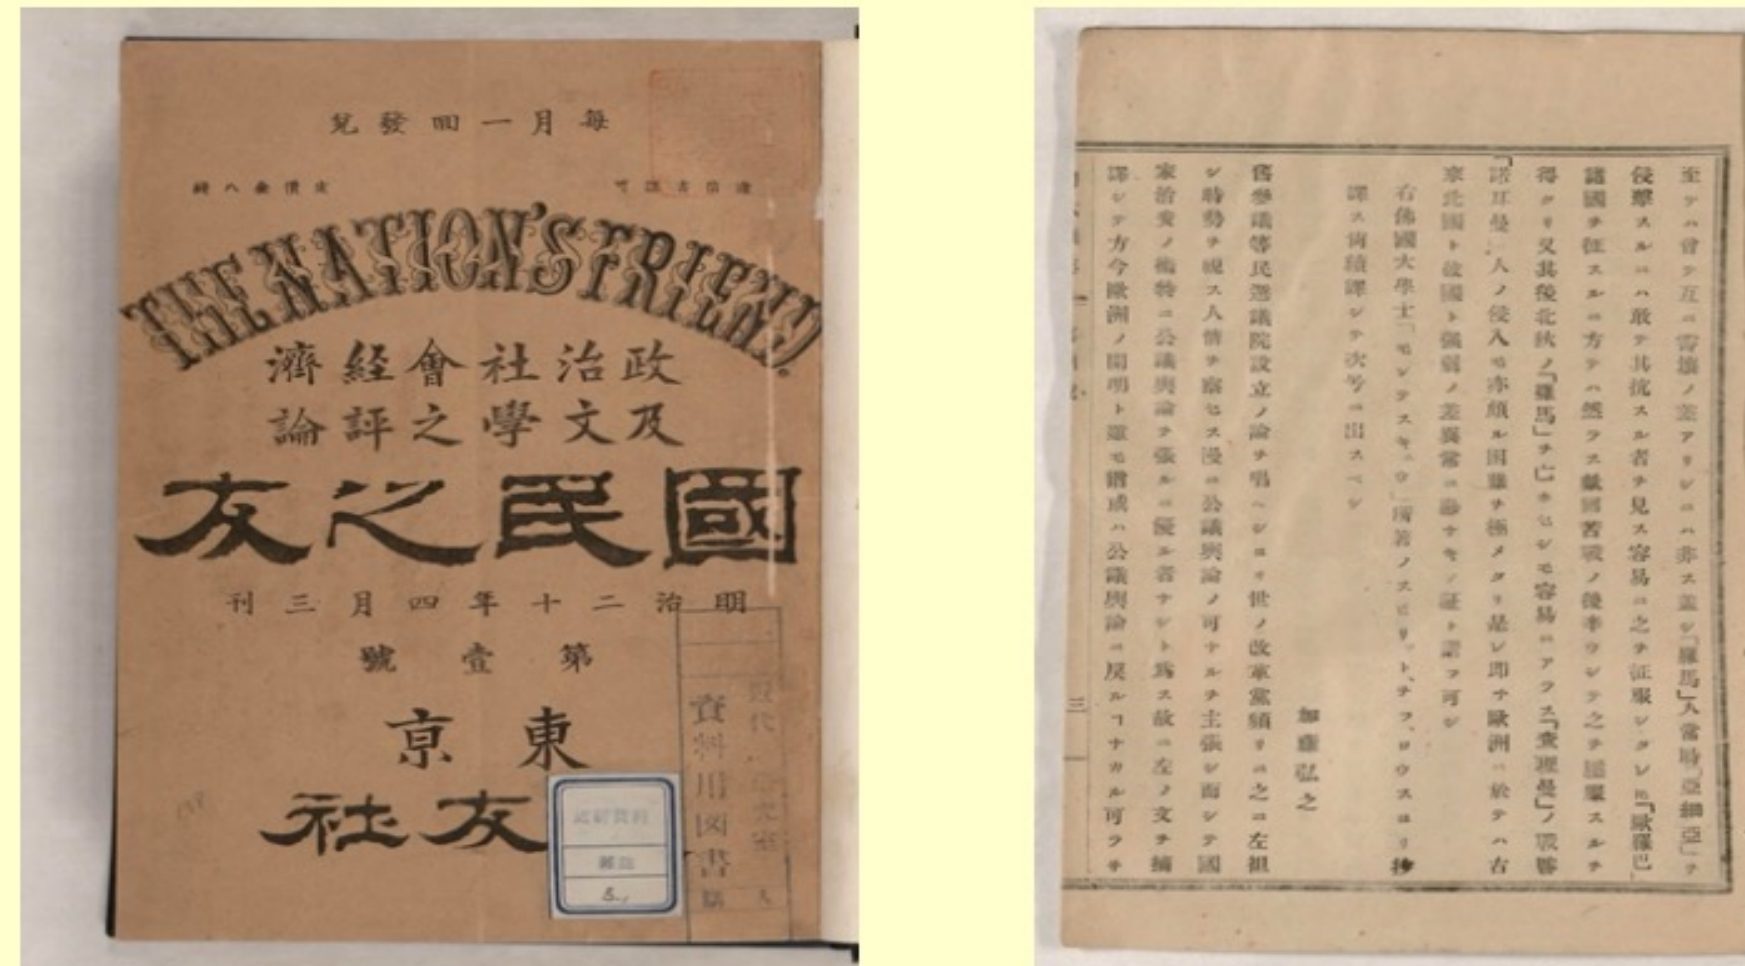 每月一回發兌
定價金八錢
THE NATION'S FRIEND.
政治社會經濟
及文學之評論
國民之友
明治二十年四月三刊
第壹號
東京
友社
資料用図書
雜誌
至テハ曾テ互ニ霄壤ノ差アリシニハ非ス蓋シ「羅馬」人當時「亞細亞」ヲ
侵擊スルニハ敢テ其抗スル者ヲ見ス容易ニ之ヲ征服シタレ𪜈「歐羅巴」
諸國ヲ征スルニ方テハ然ラス數回苦戰ノ後辛ウシテ之ヲ服スルヲ
得タリ又其後北狄ノ「羅馬」ヲ亡ホセシモ容易ニアラス「査理曼」ノ戰
「諾耳曼」人ノ侵入モ亦頗ル困難ヲ極メタリ是レ即チ歐洲ニ於テハ右
來北國ト故國ト強弱ノ差異常ニ尠ナキノ証ト謂フ可シ
右佛國大學士「モンテスキュウ」所著ノスピリット、ヲフ、ロウスヨリ抄
譯ス尚續譯シテ次号ニ出スヘシ
加藤弘之
舊參議等民選議院設立ノ論ヲ唱ヘシヨリ世ノ改革黨頻リニ之ニ左袒
シ時勢ヲ視ス人情ヲ察セス漫ニ公議輿論ノ可ナルヲ主張シ而シテ國
家治安ノ術特ニ公議輿論ヲ張ルニ優ル者ナシト爲ス故ニ左ノ文ヲ摘
譯シテ方今歐洲ノ開明ト雖モ猶或ハ公議輿論ニ戾ルヿナカル可ラサ
三